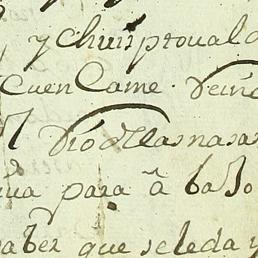 y chuisproual
Cuen Came Veine
Vio Ellas nasas
ua para â baJo
aber que se leda y